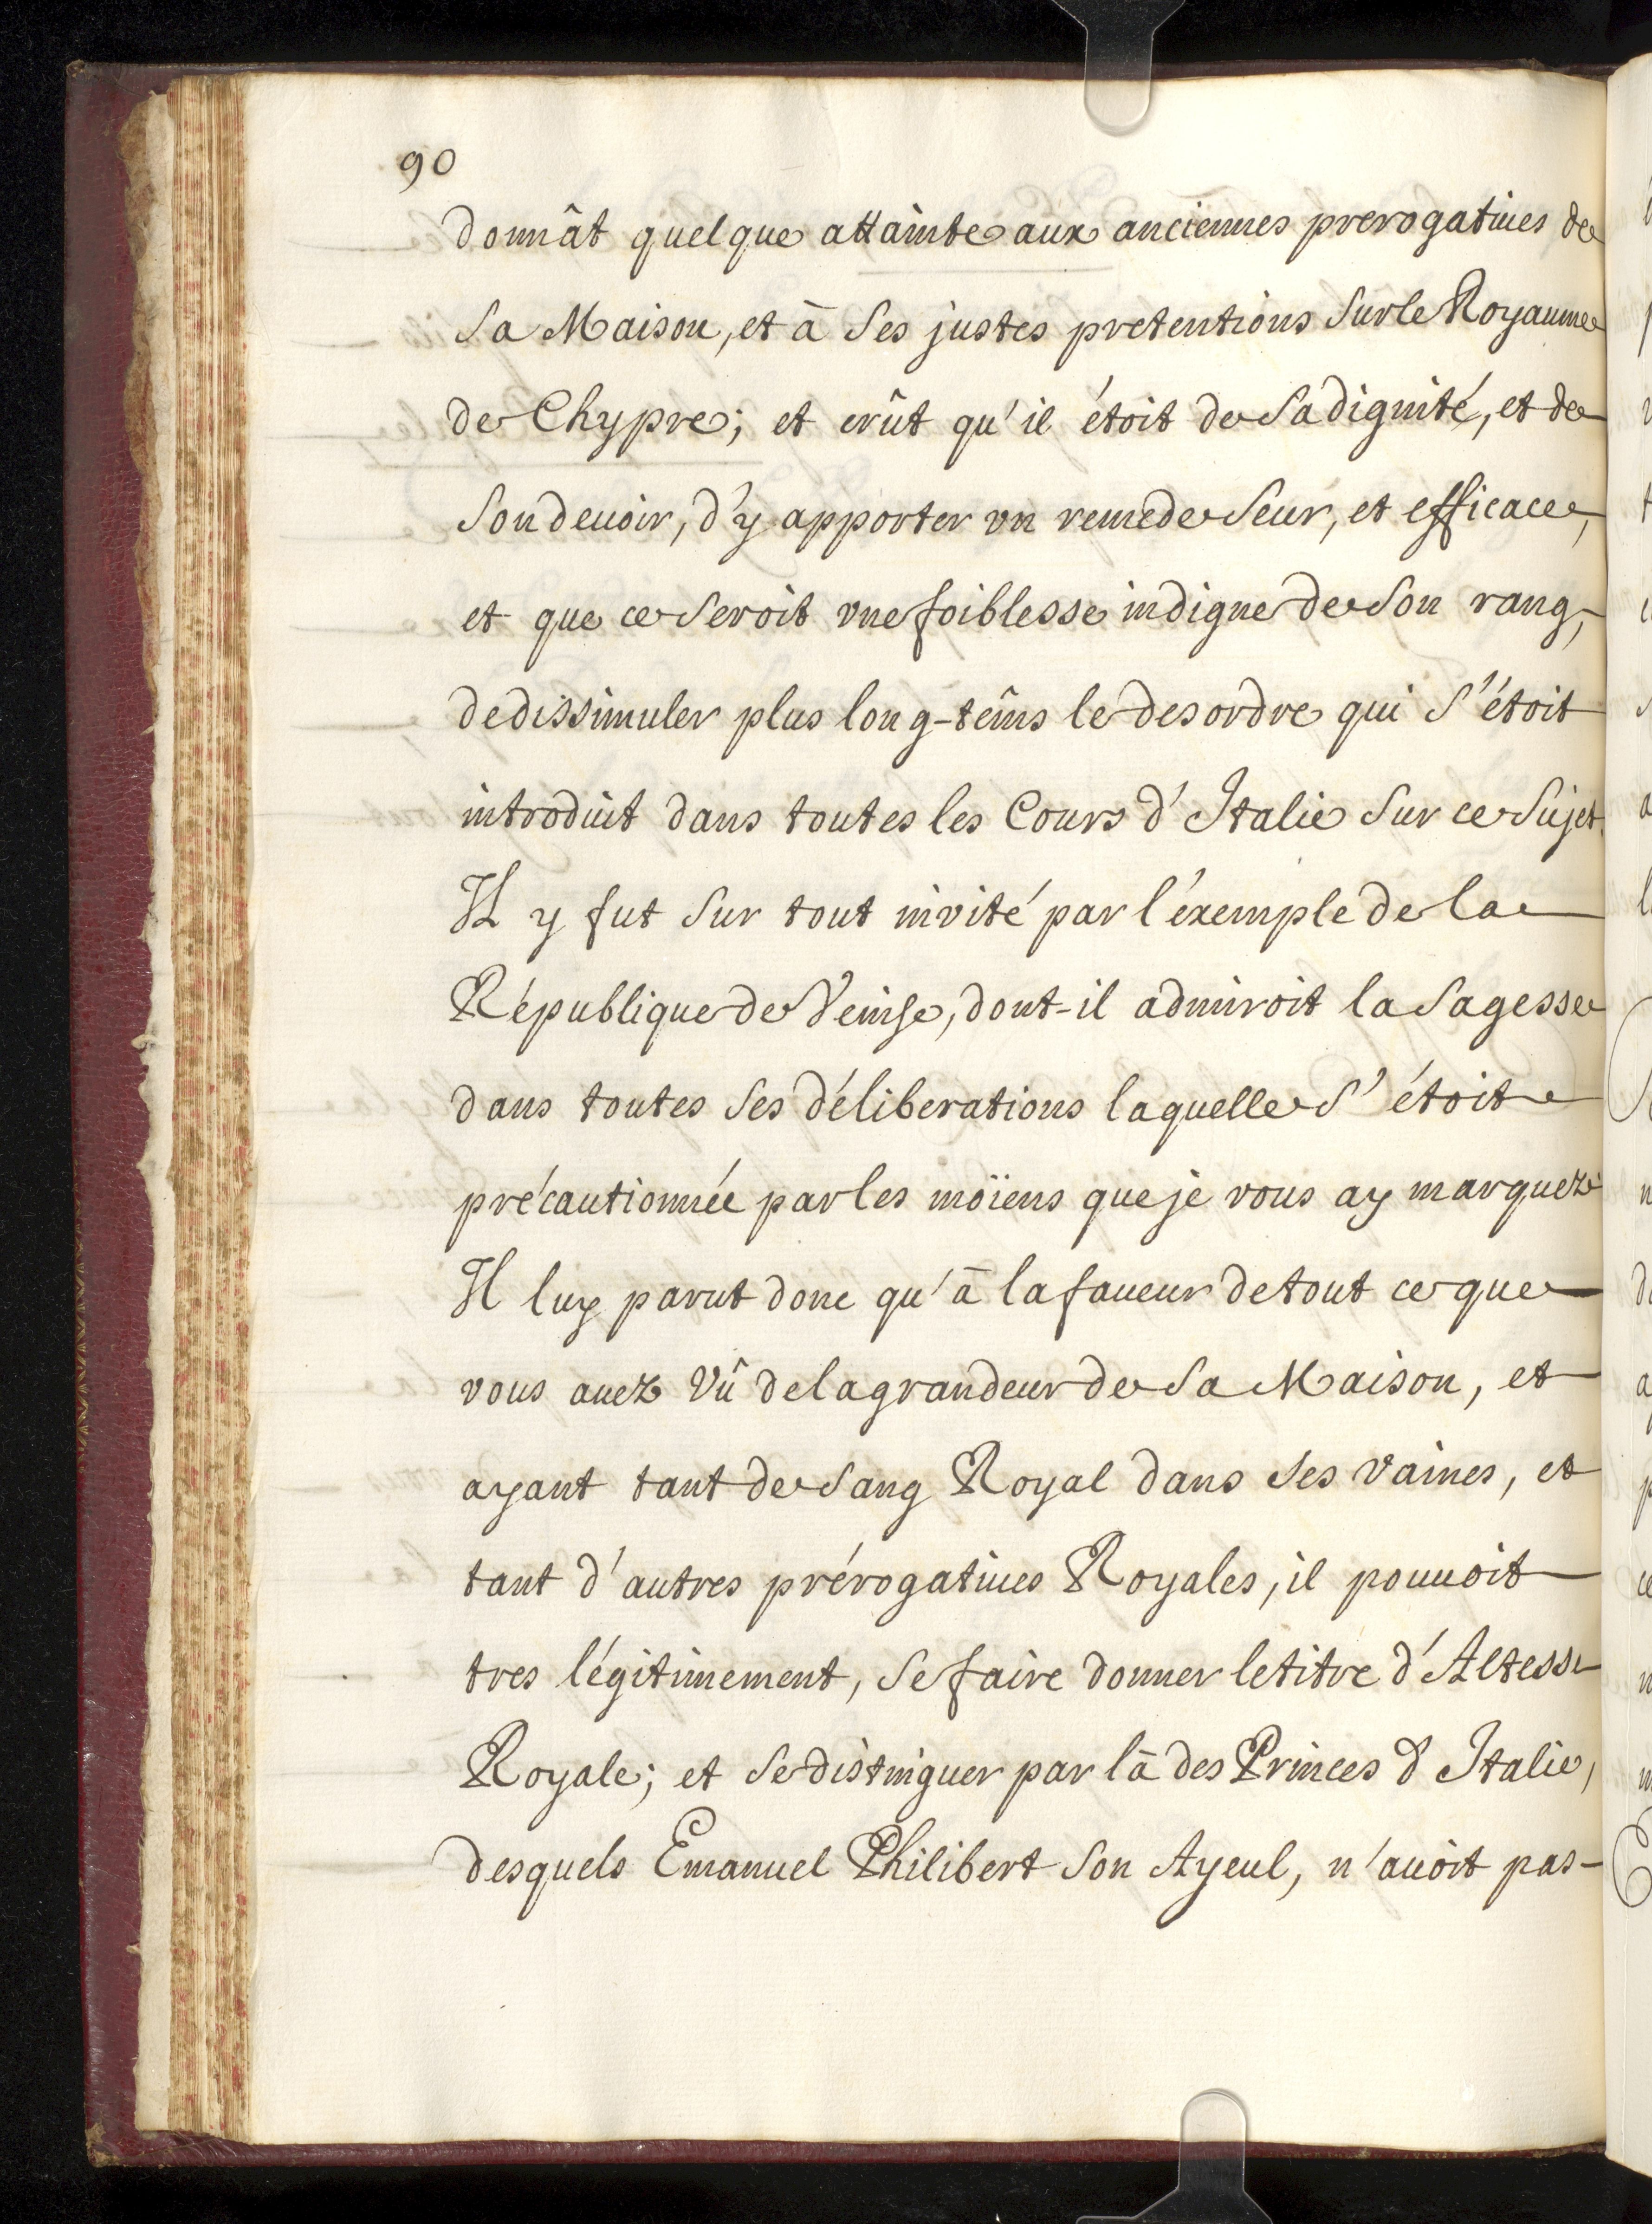 90
donnât quelque attainte aux anciennes prerogatiues de
sa Maison, et à ses justes pretentions sur le Royaume
de Chypre; et crût qu'il étoit de sa dignité, et de
son deuoir, d'y apporter vn remede seur, et efficace,
et que ce seroit vne foiblesse indigne de son rang,
de dissimuler plus long-têms le desordre qui s'étoit
introduit dans toutes les Cours d'Italie sur ce sujet.
Il y fut sur tout invité par l'éxemple de la
République de Venise, dont-il admiroit la sagesse
dans toutes ses déliberations laquelle s'étoit
précautionnée par les moïens que je vous ay marquez
Il luy parut donc qu'à la faueur de tout ce que
vous auez vû de la grandeur de sa Maison, et
ayant tant de sang Royal dans ses vaines, et
tant d'autres prérogatiues Royales, il pouuoit
tres légitimement, se faire donner le titre d'Altesse
Royale; et se distinguer par là des Princes d'Italie,
desquels Emanuel Philibert son Ayeul, n'auoit pas-